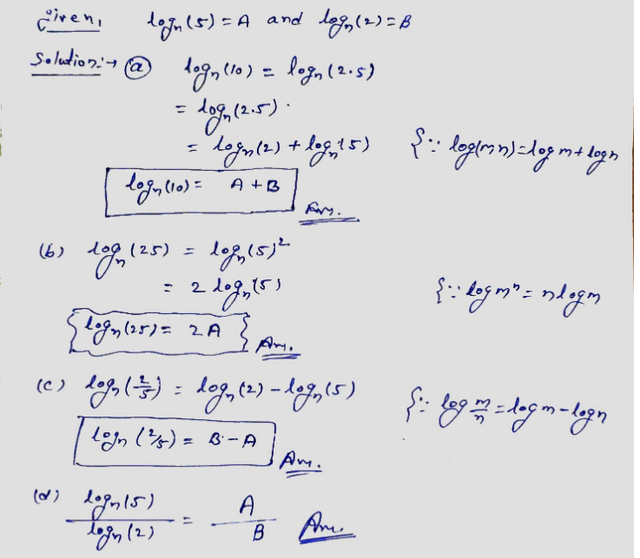 Given, logₙ(5) = A and logₙ(2) = B
Solution:→ (a) logₙ(10) = logₙ(2.5)
= logₙ(2.5).
= logₙ(2) + logₙ(5) {∵ log(mn) = log m + log n
logₙ(10) = A + B
Ans.
(b) logₙ(25) = logₙ(5)²
= 2 logₙ(5) {∵ log mⁿ = n log m
logₙ(25) = 2A Ans.
(c) logₙ(2/5) = logₙ(2) - logₙ(5) {∵ log m/n = log m - log n
logₙ(2/5) = B - A
Ans.
(d) logₙ(5) / logₙ(2) = A / B Ans.